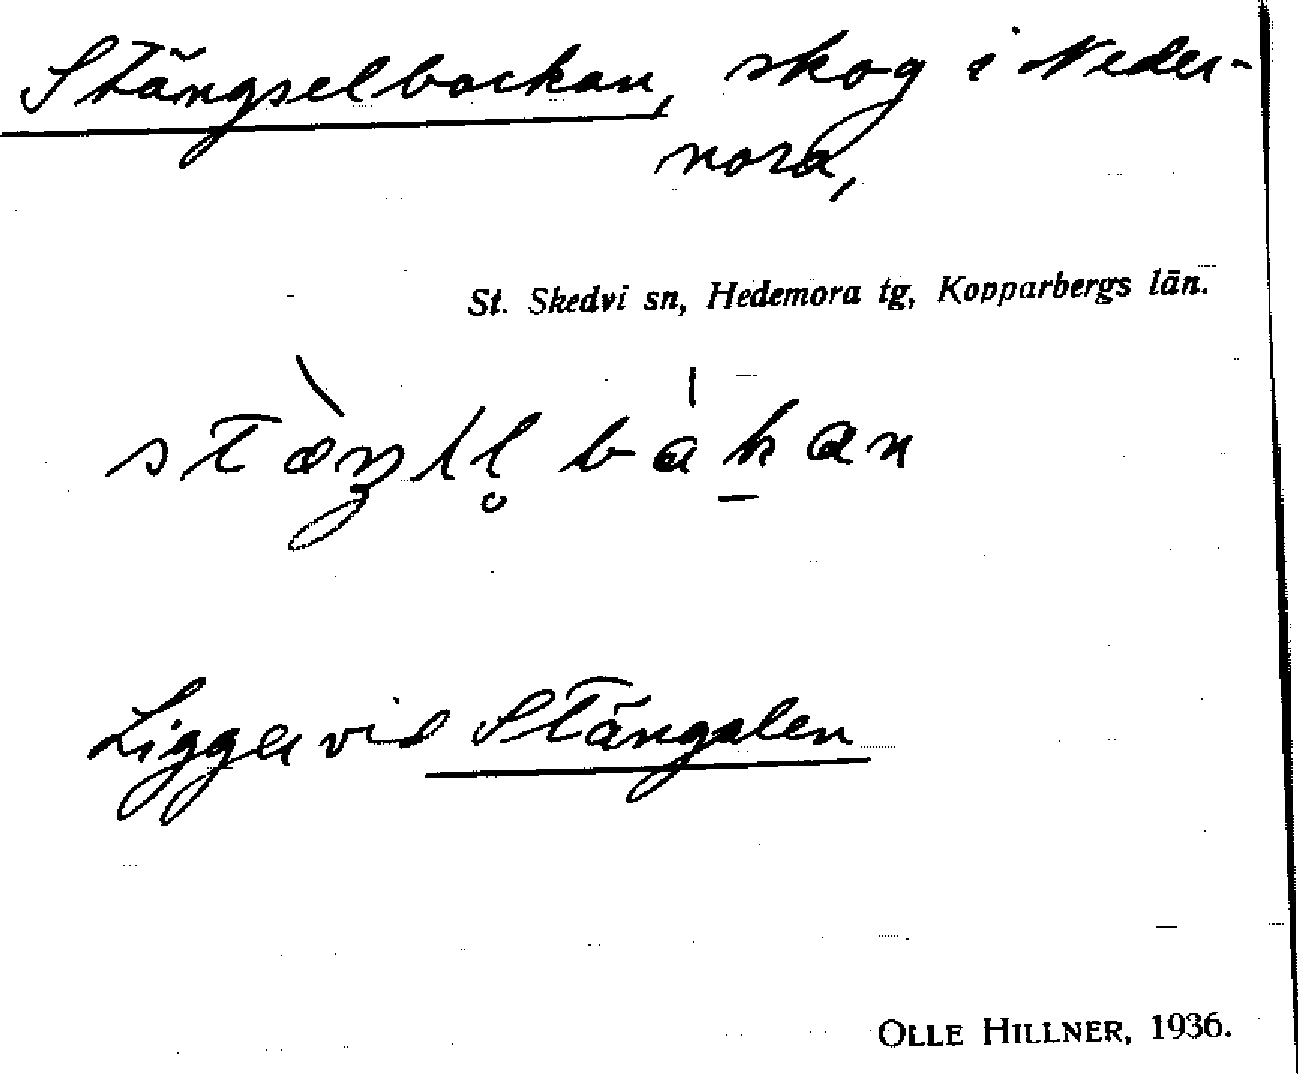 Stängselbackan, skog i Neder-
nora,
St. Skedvi sn, Hedemora tg, Kopparbergs län.
Ligger vid Stängslen
OLLE HILLNER, 1936.